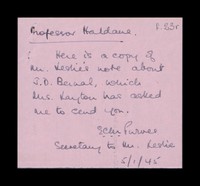 Professor Haldane.
Here is a copy of
Mr. Leslie's note about
J.D. Bernal, which
Mrs. Layton has asked
me to send you.
Purves
Secretary to Mr. Leslie
5/1/45